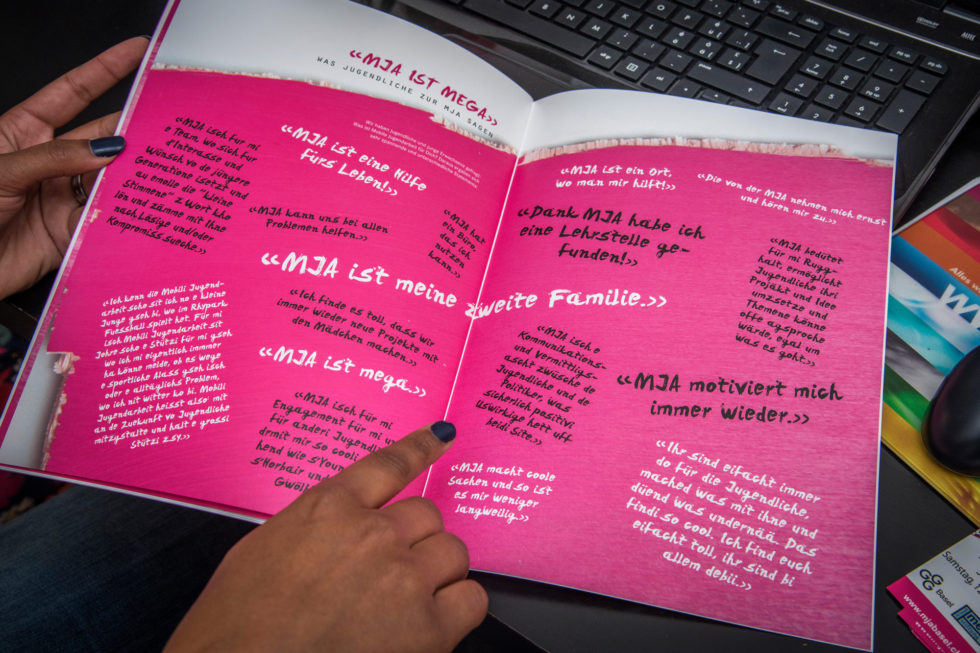 «MJA IST MEGA»
WAS JUGENDLICHE ZUR MJA SAGEN
Wir haben Jugendliche und junge Erwachsene gefragt:
Was ist Mobile Jugendarbeit für Dich? Daraus ergaben sich
sehr spannende und unterschiedliche Statements.
«MJA isch für mi
e Team, wo sich für
d'Interesse und
Wünsch vo de jüngere
Generatione isetzt und
au emolle die "kleine
Stimmene" z Wort kho
lön und zämme mit Ihne
nach Lösige und/oder
Kompromiss sueche.»
«MJA ist eine Hilfe
fürs Leben!»
«MJA kann uns bei allen
Problemen helfen.»
«MJA hat
ein Büro,
das ich
nutzen
kann.»
«MJA ist meine zweite Familie.»
«Ich kenn die Mobili Jugend-
arbeit scho sit ich no e kleine
Junge gseh bi, wo im Rhypark
Fuessball spielt het. Für mi
isch Mobili Jugendarbeit sit
Johre scho e Stützi für mi gseh
wo ich mi eigentlich immmer
ha könne melde, ob es wege
e sportliche Alass gseh isch
oder e alltäglichs Problem,
wo ich nit witter ko bi. Mobili
Jugendarbeit heisst also mit
an de Zuekunft vo Jugendliche
mitzgstalte und halt e grossi
Stützi zsy.»
«Ich finde es toll, dass wir
immer wieder neue Projekte mit
den Mädchen machen.»
«MJA ist mega.»
«MJA isch für mi
Engagement für mi un
für anderi Jugendli
drmit mir so cooli
hend wie s'Youn
s'Horbair un
Gwöll
«MJA ist ein Ort,
wo man mir hilft!»
«Die von der MJA nehmen mich ernst
und hören mir zu.»
«Dank MJA habe ich
eine Lehrstelle ge-
funden!»
«MJA bedütet
für mi Rugg-
halt, ermöglicht
Jugendliche ihri
Projäkt und Idee
umzsetze und
Themene könne
offe agsproche
wärde, egal um
was es goht.»
«MJA isch e
Kommunikations-
und Vermittligs-
ascht zwüsche de
Jugendliche und de
Politiker, was
sicherlich positivi
Uswirkige hett uff
beidi Site.»
«MJA motiviert mich
immer wieder.»
«MJA macht coole
Sachen und so ist
es mir weniger
langweilig.»
«Ihr sind eifacht immer
do für die Jugendliche,
mached was mit ihne und
düend was undernää. Das
findi so cool. Ich find euch
eifacht toll, ihr sind bi
allem debii.»
Alles w
W
Samstag, 1
GGG
Basel
www.mjabasel.ch